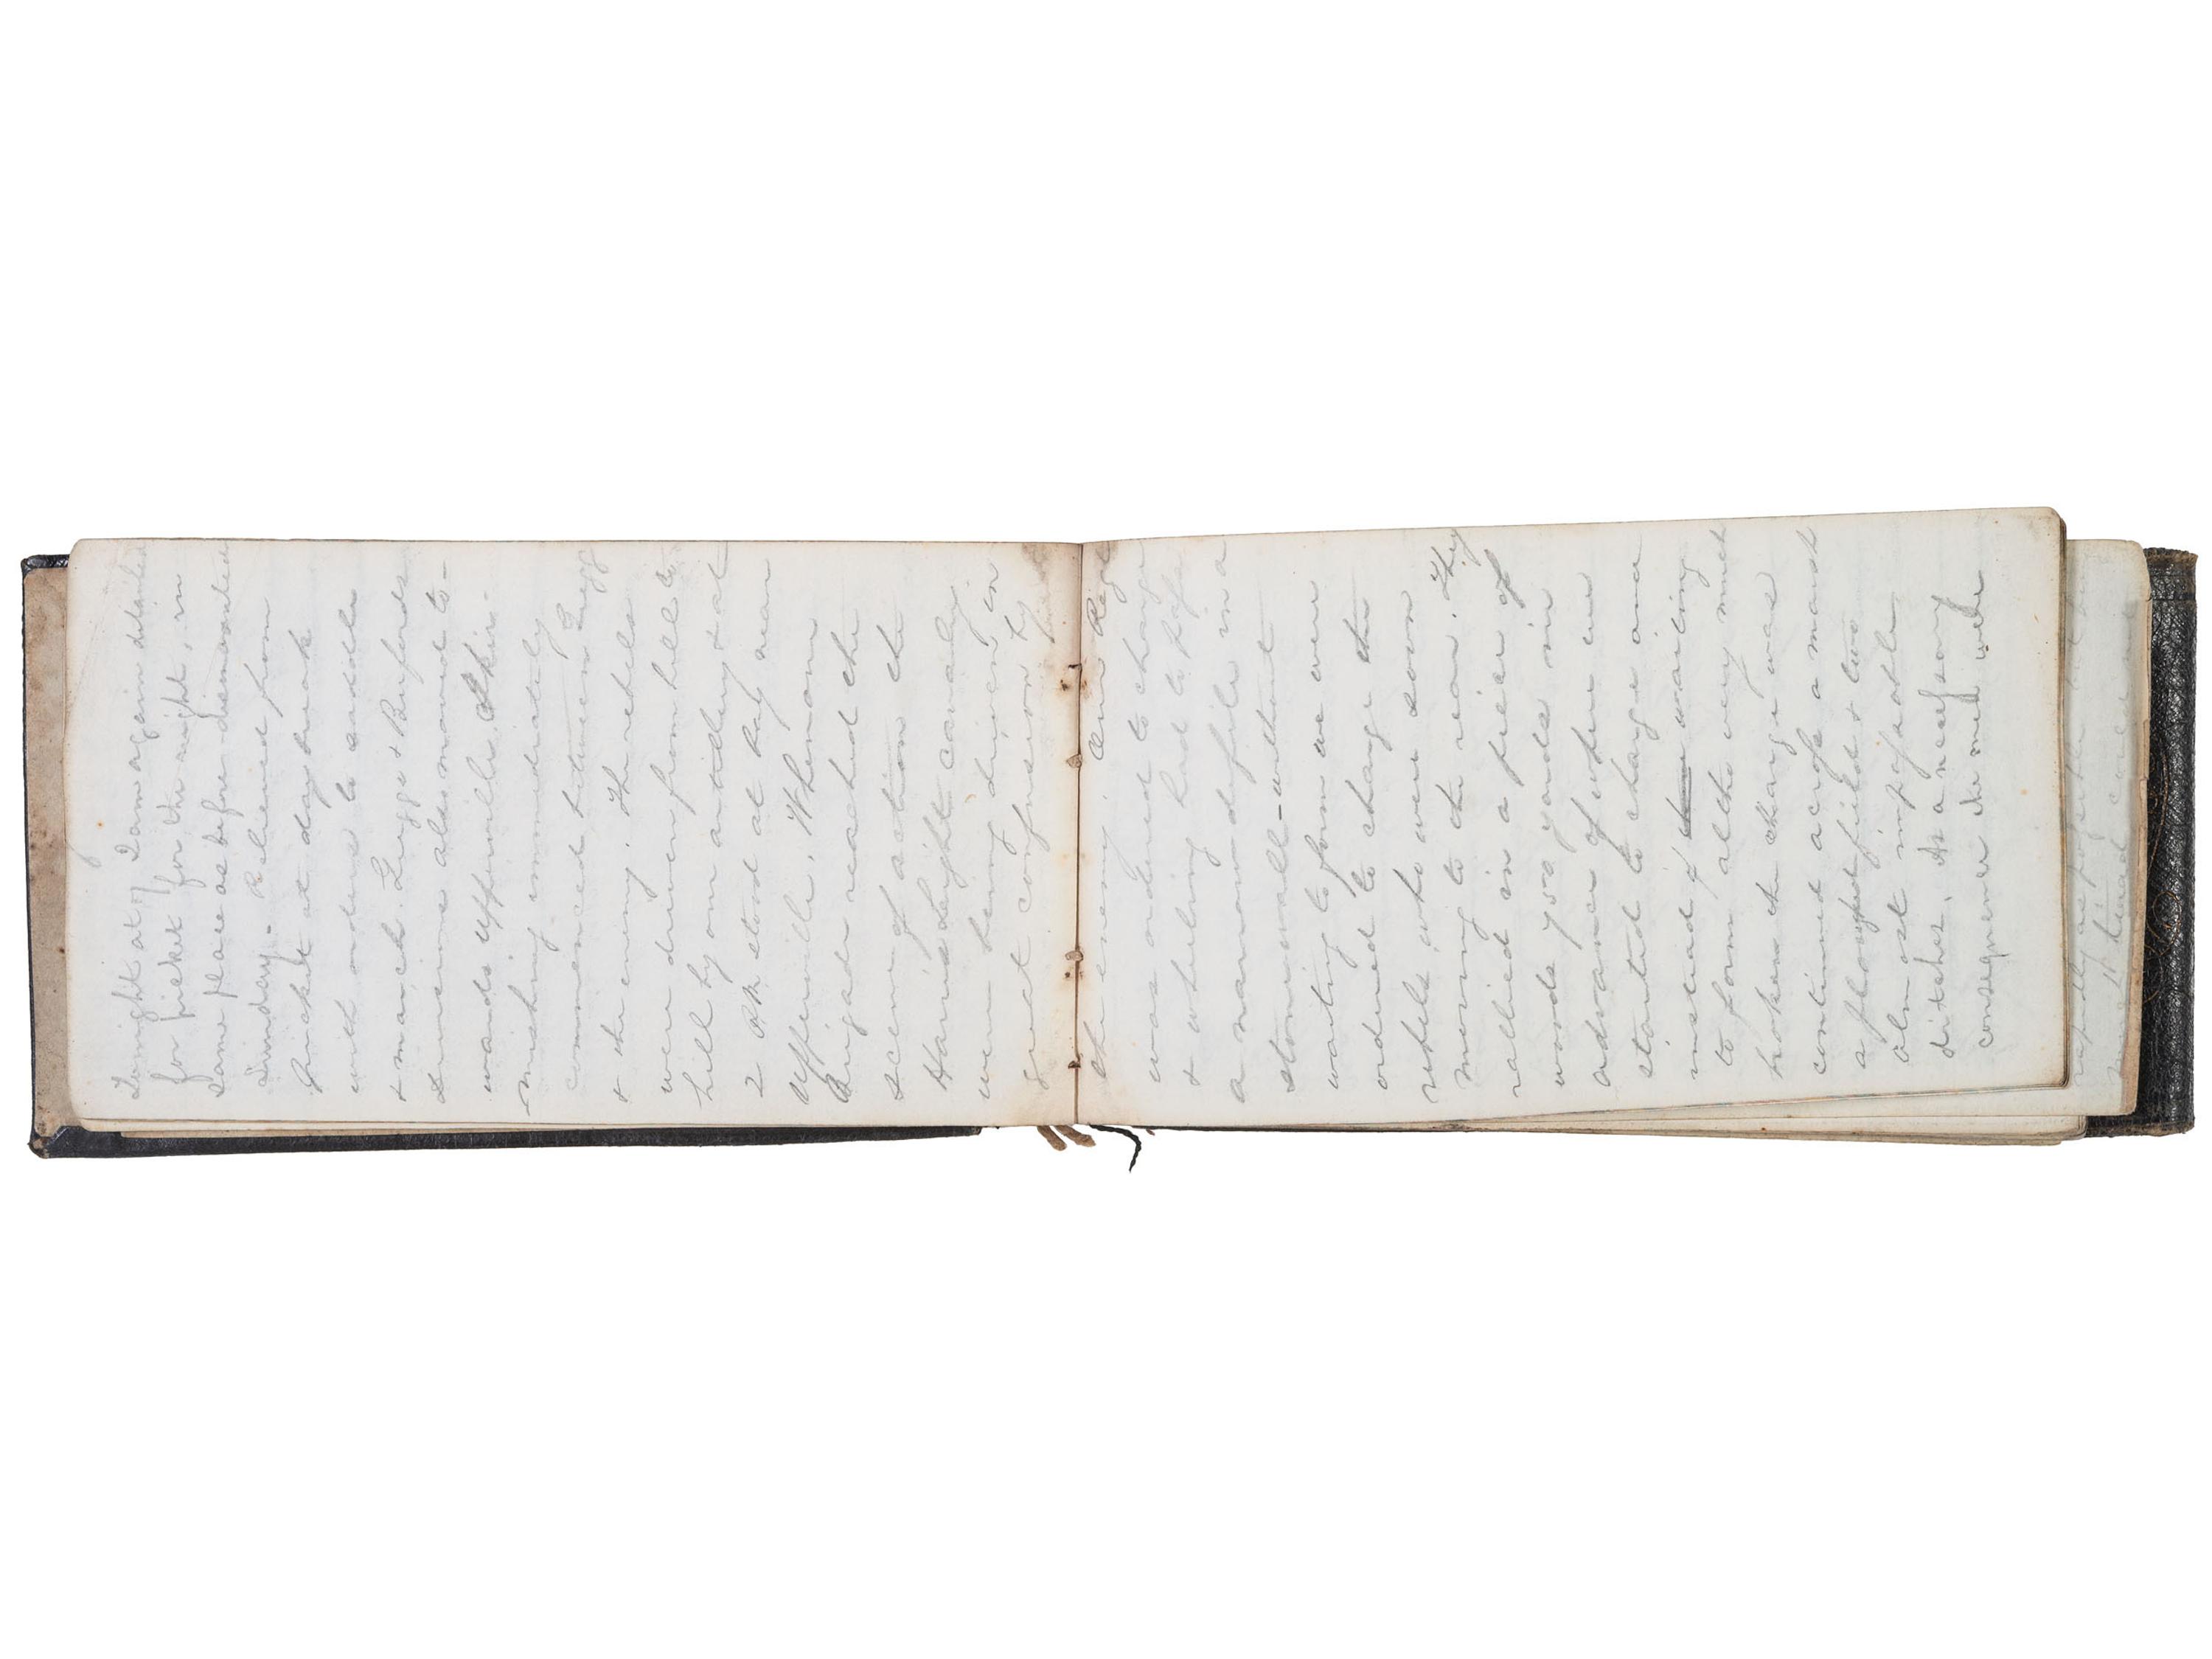 Tonight at 7 I am again detailed
for picket for the night, in
same place as before dismounted
Sunday. Relieved from
picket at day break
with orders to saddle
& march. Greggs & Bufords
divisions also moved to-
wards Upperville. Skir-
mishing immediately
commenced between Gregg
& the enemy. The rebels
were driven from hill to
hill by our artillery & at
2 PM stood at bay near
Upperville. When our
Brigade reached the
scene of action the
Harris Light cavalry
were being driven in
great confusion by
the enemy. Our Regt
was ordered to charge
& wheeling had to pass
a narrow defile in a
stone wall - without
waiting to form we were
ordered to charge the
rebels, who were soon
moving to the rear. They
rallied in a piece of
woods 400 yards in
advance of where we
started to charge and
instead of waiting
to form altho very much
broken the charge was
continued across a marsh
a plowed field & two
almost impassable
ditches. As a necessary
consequence the med were